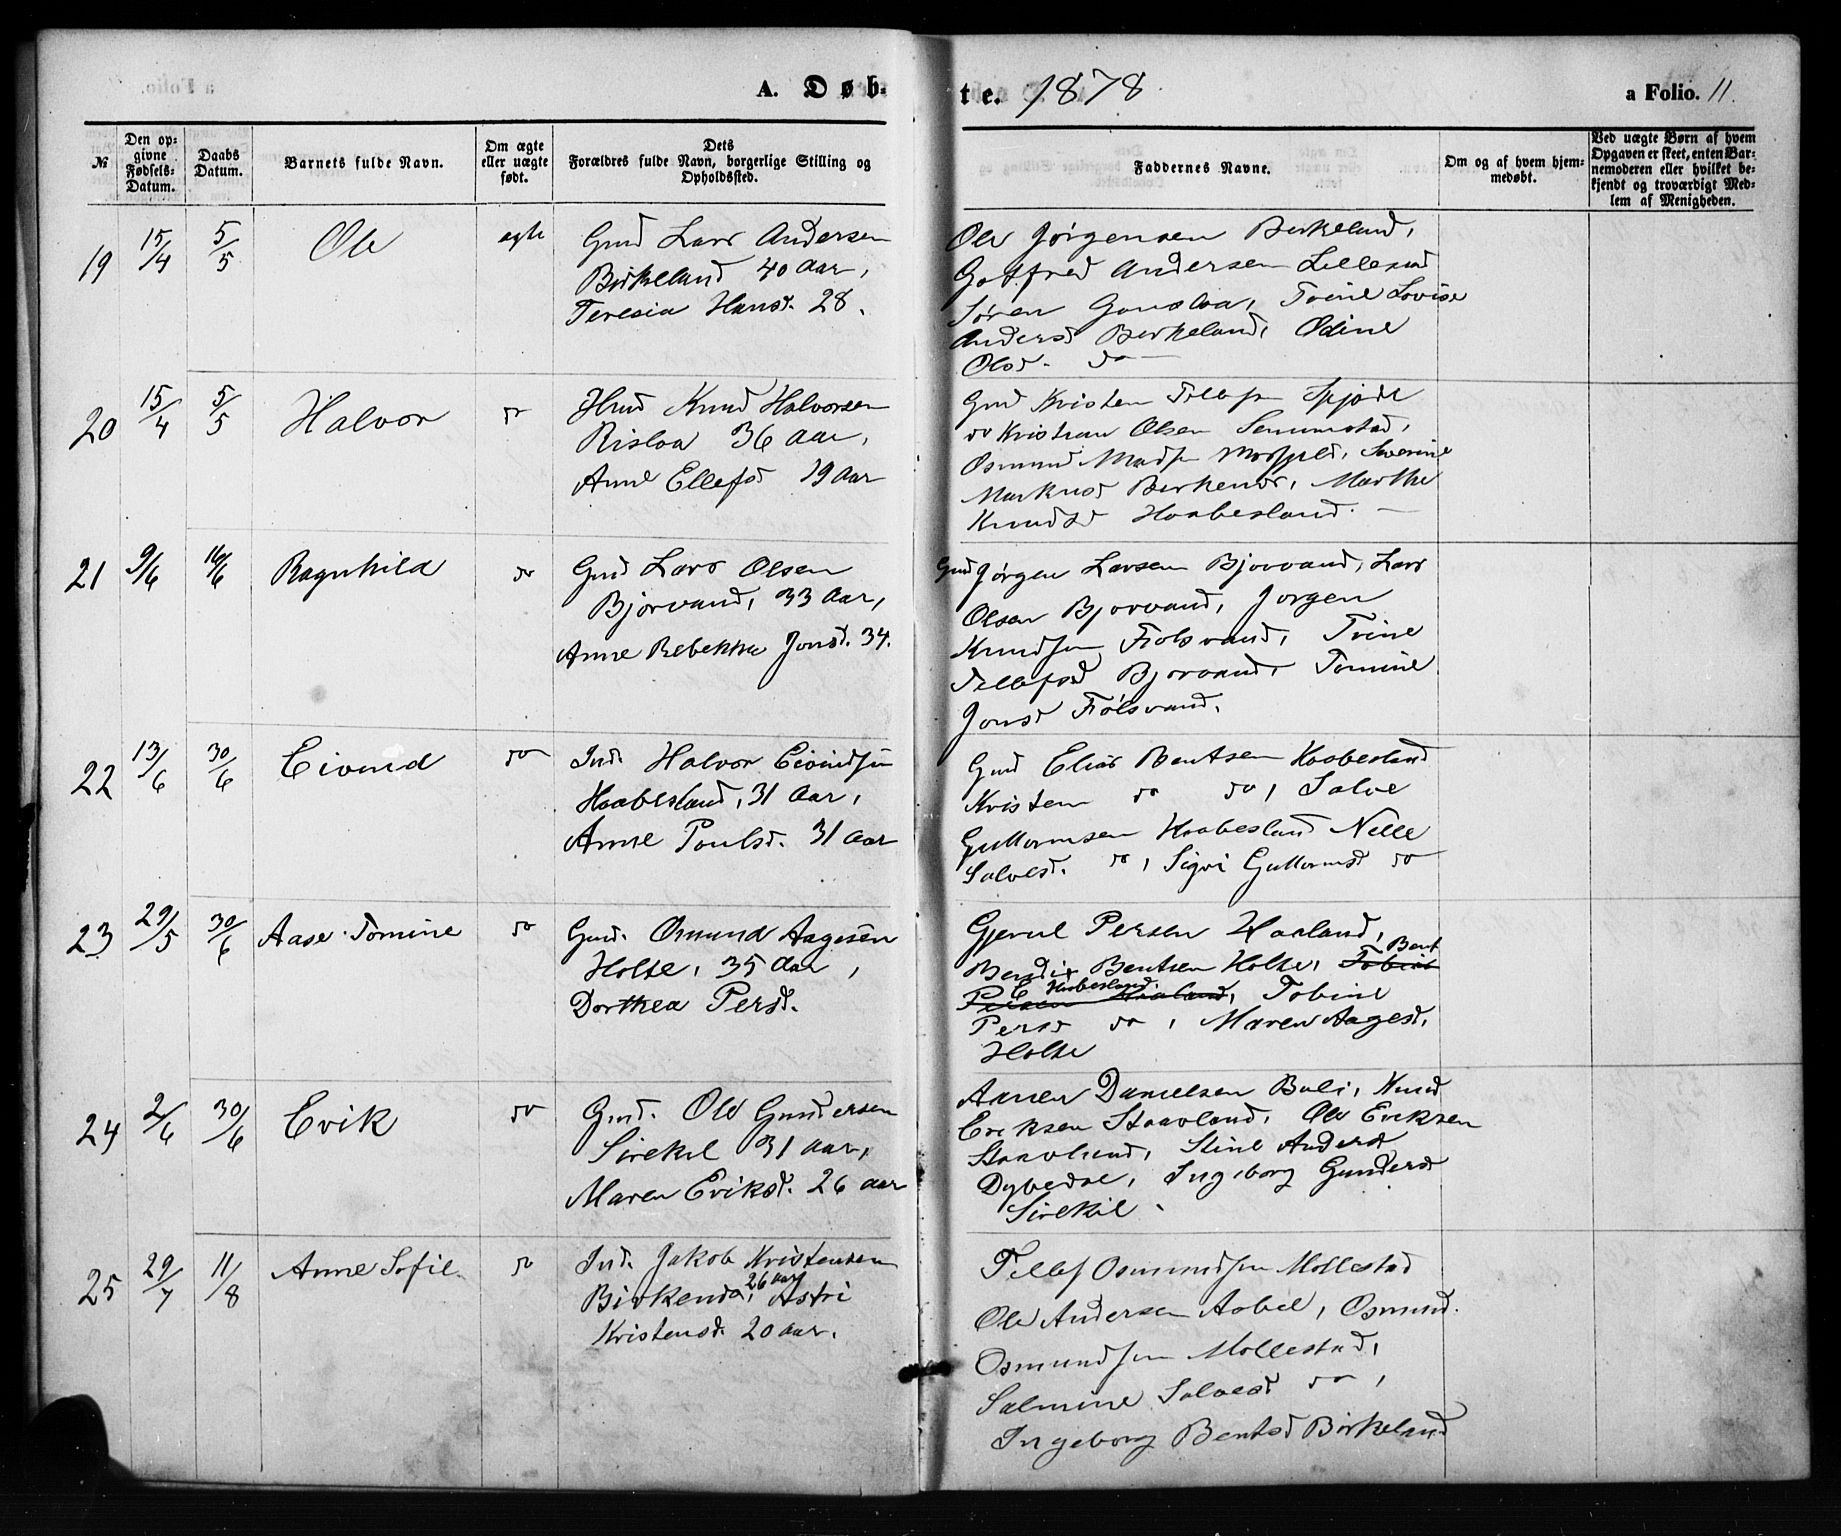 A. Døb-
te. 1878
a Folio. 11.
№
Den op-
givne
Fødsels-
Datum.
Daabs
Datum.
Barnets fulde Navn.
Om ægte
eller uægte
født.
Dets
Forældres fulde Navn, borgerlige Stilling og
Opholdssted.
Faddernes Navne.
Om og af hvem hjem-
medøbt.
Ved uægte Børn af hvem
Opgaven er skeet, enten Bar-
nemoderen eller hvilket be-
kjendt og troværdigt Med-
lem af Menigheden.
19 15/4 5/5 Ole ægte
Gmd Lars Andersen
Birkeland 40 Aar,
Teresia Hansd. 28.
Ole Jörgensen Birkeland,
Gotfred Andersen Lillesand
Sören Trine Lovise
Andersd Birkeland, Odine
Olsd. do
20 15/4 5/5 Halvor do
Hmd Knud Halvorsen
Risloa 36 Aar,
Anne Ellefsd 19 Aar
Gmd Kristen Tellefsen
do Kristian Olsen Senumstad,
Osmund Madsen Severine
Markusd Birkenes, Marthe
Knudsd Haabesland.
21 9/6 16/6 Ragnhild do
Gmd Lars Olsen
Bjorvand, 33 Aar,
Anne Rebekka Jonsd. 34.
Gmd Jörgen Larsen Bjorvand, Lars
Olsen Bjorvand, Jorgen
Knudsen Fiolsvand, Trine
Tellefsd Bjorvand, Tomine
Jonsd Fiölsvand.
22 13/6 30/6 Eivind do
Ind. Halvor Eivindsen
Haabesland, 31 Aar,
Anne Poulsd. 31 Aar
Gmd Elias Bentsen Haabesland
Kristen do do, Salve
Guttormsen Haabesland Nelle
Salvesd. do, Sigri Guttormsd do
23 29/5 30/6 Aase Tomine do
Gmd. Osmund Aagesen
Holte, 35 Aar,
Dorthea Persd.
Gjerul Persen Haaland,
Bent
Bendix Bentsen Holte, Tobias
E. Haabesland.
Persen Haaland, Tobine
Persd do, Maren Aagesd,
Holte
24 2/6 30/6 Erik do
Gmd. Ole Gundersen
Sirekil 31 Aar,
Maren Eriksd. 26 aar
Aanen Danielsen Bali, Knud
Eriksen Staavland, Ole Eriksen
Staavland, Stine Andersd
Dybedal, Ingeborg Gundersd
Sirekil.
25 29/7 11/8 Anne Sofie. do
Ind. Jakob Kristensen
26 aar
Birkenes, Astri
Kristensd. 20 aar.
Tellef Osmundsen Mollestad
Ole Andersen Aabel, Osmund.
Osmundsen Mollestad,
Salmine Salvesd do,
Ingeborg Bentsd Birkeland